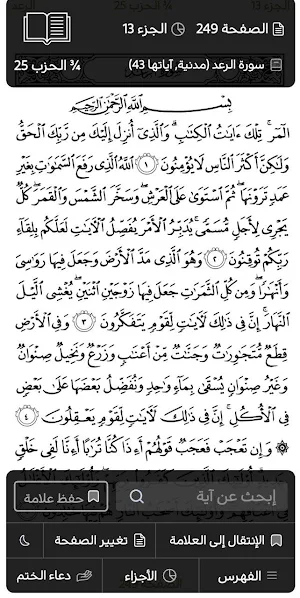 الصفحة 249
الجزء 13
سورة الرعد (مدنية, آياتها 43)
¾ الحزب 25
بِسْمِ اللَّهِ الرَّحْمَٰنِ الرَّحِيمِ
الٓمٓر ۚ تِلْكَ ءَايَٰتُ ٱلْكِتَٰبِ ۗ وَٱلَّذِىٓ أُنزِلَ إِلَيْكَ مِن رَّبِّكَ ٱلْحَقُّ
وَلَٰكِنَّ أَكْثَرَ ٱلنَّاسِ لَا يُؤْمِنُونَ ١ ٱللَّهُ ٱلَّذِى رَفَعَ ٱلسَّمَٰوَٰتِ بِغَيْرِ
عَمَدٍ تَرَوْنَهَا ۖ ثُمَّ ٱسْتَوَىٰ عَلَى ٱلْعَرْشِ ۖ وَسَخَّرَ ٱلشَّمْسَ وَٱلْقَمَرَ ۖ كُلٌّ
يَجْرِى لِأَجَلٍ مُّسَمًّى ۚ يُدَبِّرُ ٱلْأَمْرَ يُفَصِّلُ ٱلْءَايَٰتِ لَعَلَّكُم بِلِقَآءِ
رَبِّكُمْ تُوقِنُونَ ٢ وَهُوَ ٱلَّذِى مَدَّ ٱلْأَرْضَ وَجَعَلَ فِيهَا رَوَٰسِىَ
وَأَنْهَٰرًا ۖ وَمِن كُلِّ ٱلثَّمَرَٰتِ جَعَلَ فِيهَا زَوْجَيْنِ ٱثْنَيْنِ ۖ يُغْشِى ٱلَّيْلَ
ٱلنَّهَارَ ۚ إِنَّ فِى ذَٰلِكَ لَءَايَٰتٍ لِّقَوْمٍ يَتَفَكَّرُونَ ٣ وَفِى ٱلْأَرْضِ
قِطَعٌ مُّتَجَٰوِرَٰتٌ وَجَنَّٰتٌ مِّنْ أَعْنَٰبٍ وَزَرْعٌ وَنَخِيلٌ صِنْوَانٌ
وَغَيْرُ صِنْوَانٍ يُسْقَىٰ بِمَآءٍ وَٰحِدٍ وَنُفَضِّلُ بَعْضَهَا عَلَىٰ بَعْضٍ
فِى ٱلْأُكُلِ ۚ إِنَّ فِى ذَٰلِكَ لَءَايَٰتٍ لِّقَوْمٍ يَعْقِلُونَ ٤
۞ وَإِن تَعْجَبْ فَعَجَبٌ قَوْلُهُمْ أَءِذَا كُنَّا تُرَٰبًا أَءِنَّا لَفِى خَلْقٍ
إبحث عن آية
حفظ علامة
الإنتقال إلى العلامة
تغيير الصفحة
الفهرس
الأجزاء
دعاء الختم